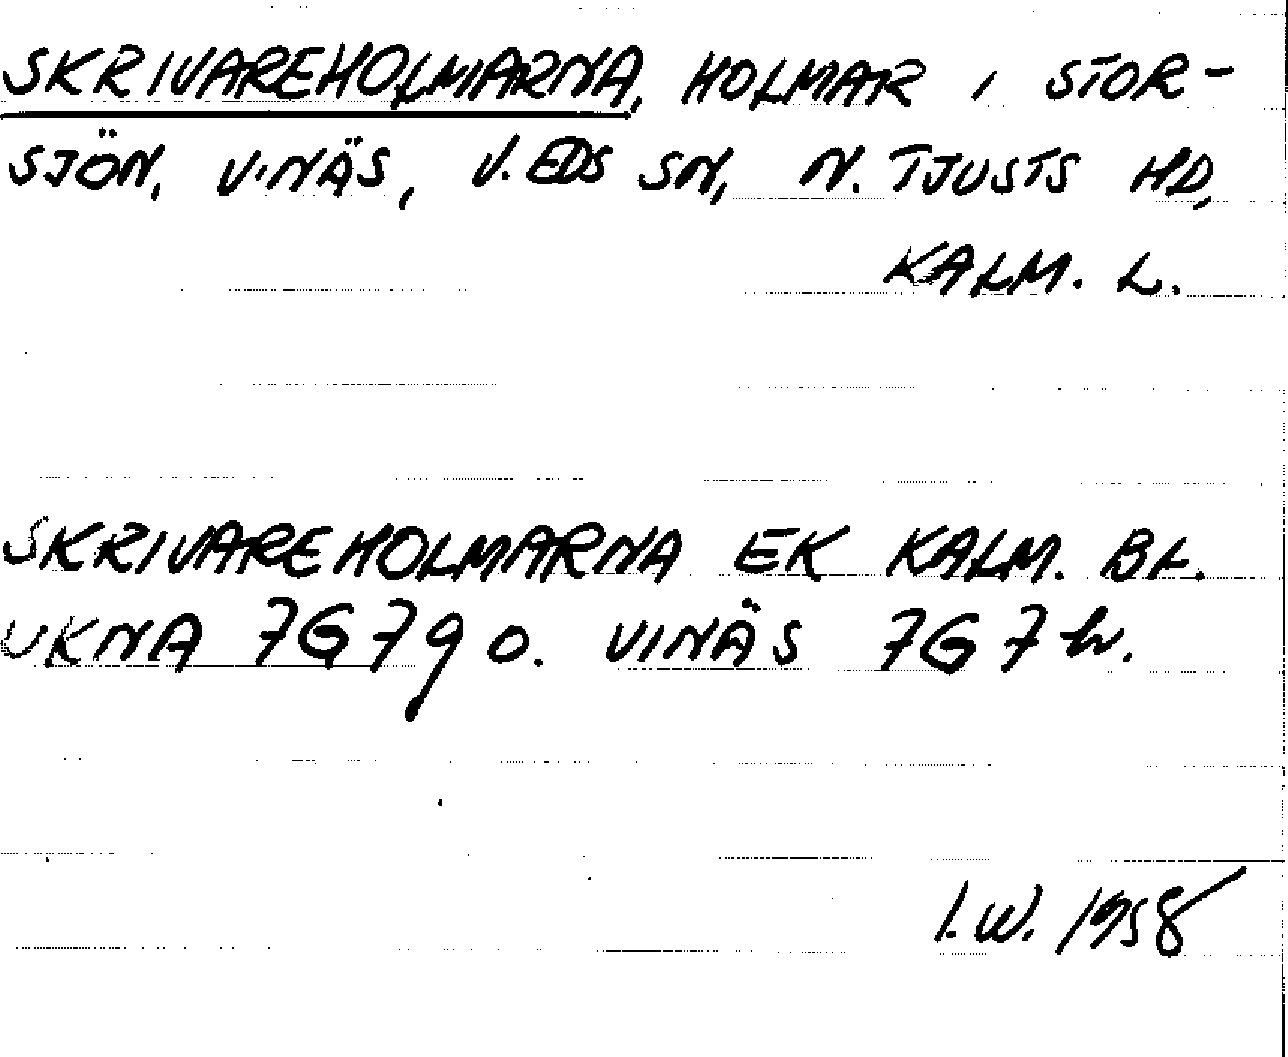 SKRIVAREHOLMARNA, HOLMAR I STOR-
SJÖN, VINÄS, V. EDS SN, N. TJUSTS HD,
KALM. L.
SKRIVAREHOLMARNA EK KALM. BL.
UKNA 7G7g O. VINÄS 7G7h.
I.W. 1958